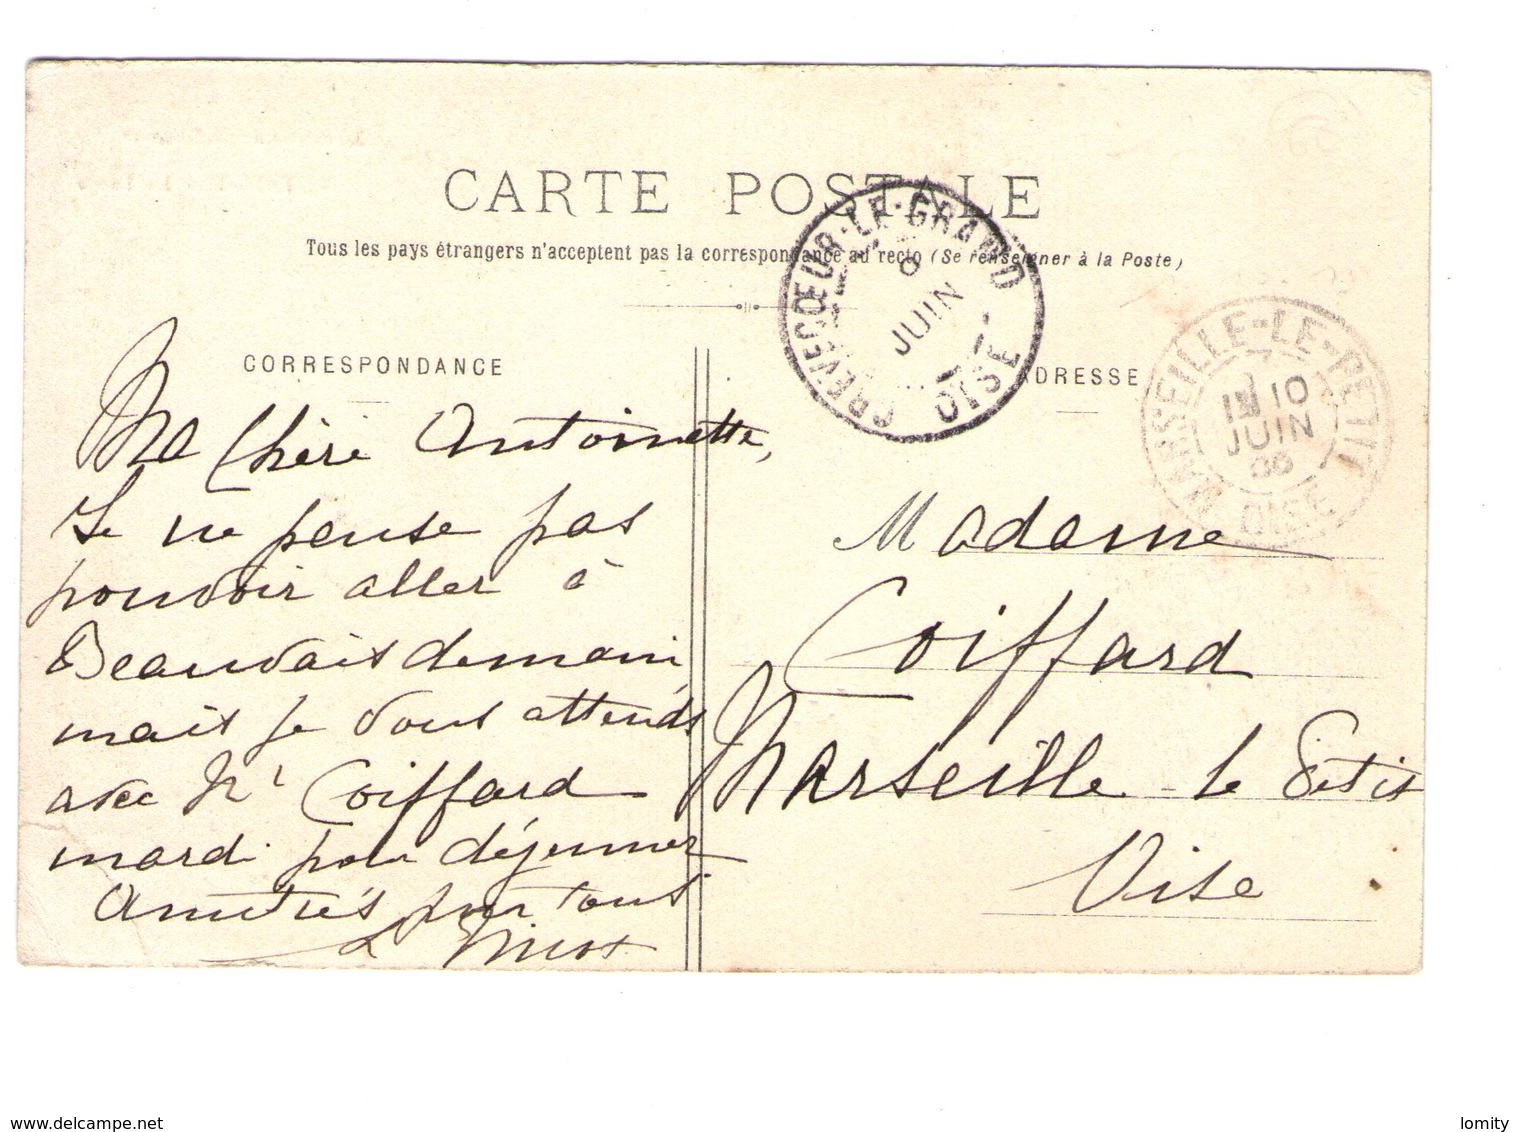 CARTE POSTALE
Tous les pays étrangers n'acceptent pas la correspondance au recto (Se renseigner à la Poste)
CREVECŒUR-LE-GRAND
JUIN
OISE
MARSEILLE-LE-PETIT
10
JUIN
06
OISE
CORRESPONDANCE
ADRESSE
Ma chère Antoinette,
Je ne pense pas
pouvoir aller à
Beauvais demain
mais je vous attends
avec Mr Coiffard
mardi pour déjeuner
Amitiés pour tous
Madame
Coiffard
Marseille le Petit
Oise
www.delcampe.net
lomity